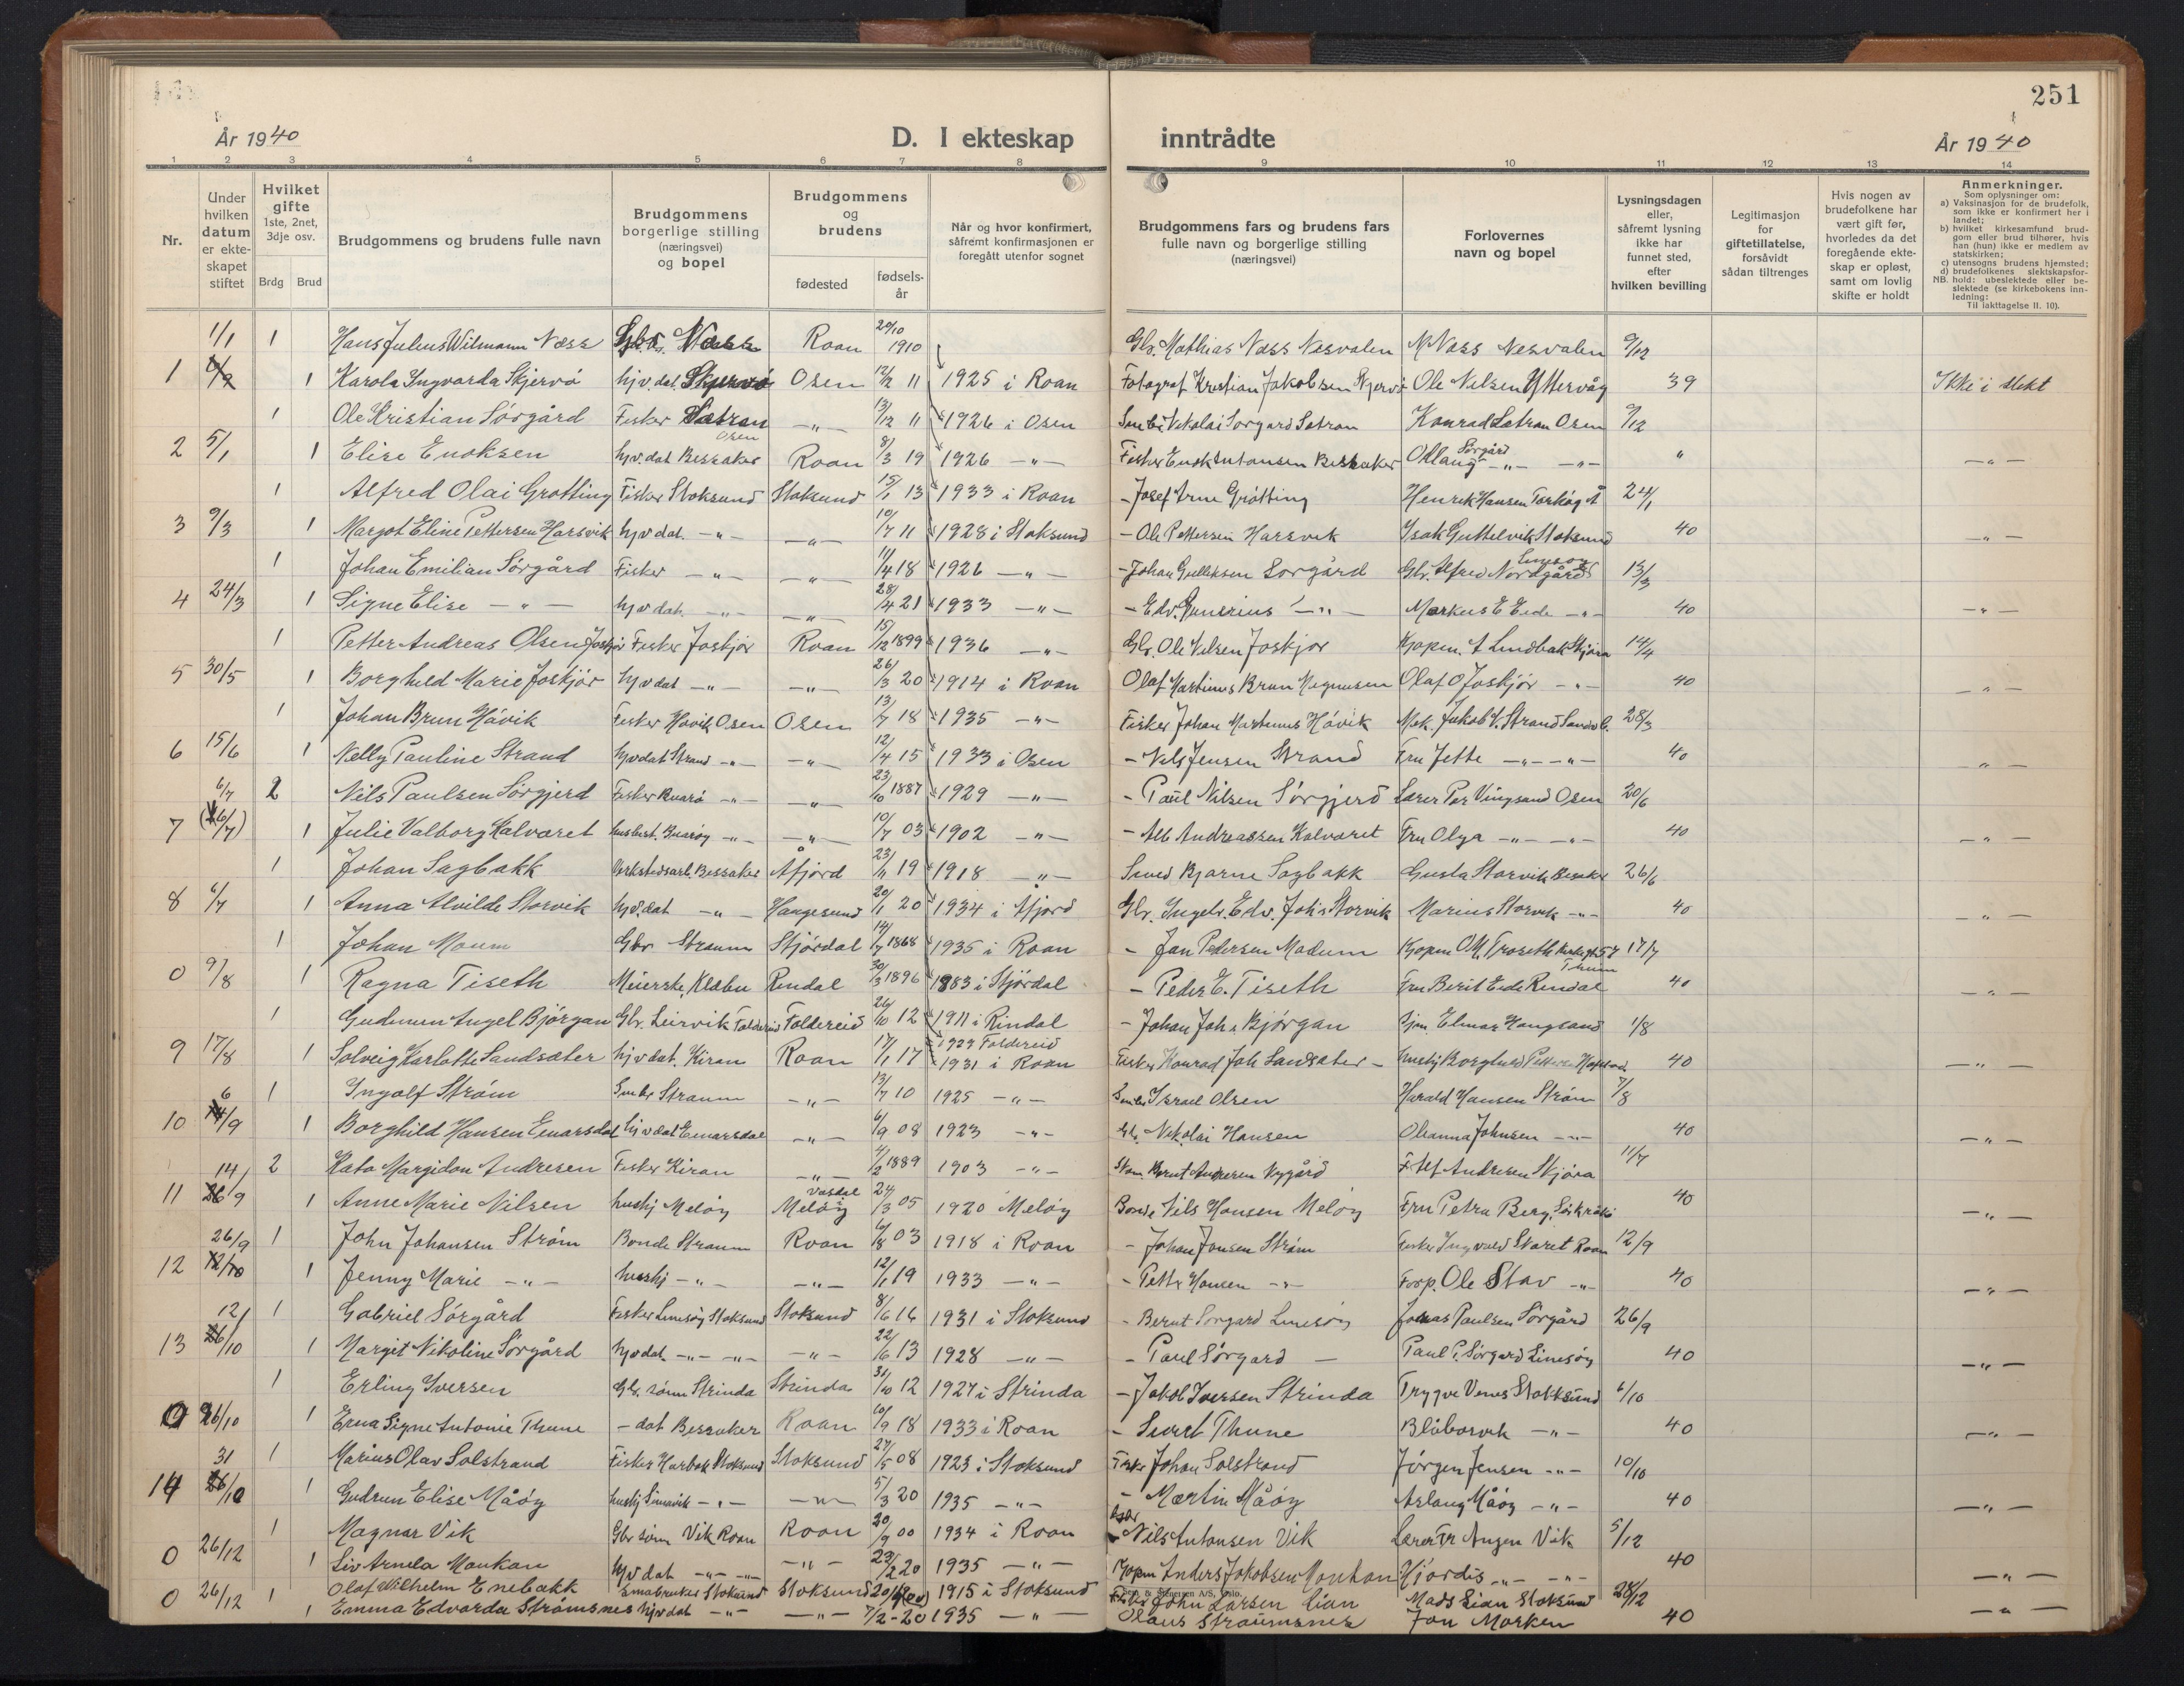 251
År 1940
D. I ekteskap inntrådte
År 1940
1 2 3 4 5 6 7 8 9 10 11 12 13 14
Nr.
Under hvilken datum er ekteskapet stiftet
Hvilket gifte 1ste, 2net, 3dje osv.
Brdg Brud
Brudgommens og brudens fulle navn
Brudgommens borgerlige stilling (næringsvei) og bopel
Brudgommens og brudens
fødested
fødsels-år
Når og hvor konfirmert, såfremt konfirmasjonen er foregått utenfor sognet
Brudgommens fars og brudens fars fulle navn og borgerlige stilling (næringsvei)
Forlovernes navn og bopel
Lysningsdagen eller, såfremt lysning ikke har funnet sted, efter hvilken bevilling
Legitimasjon for giftetillatelse, forsåvidt sådan tiltrenges
Hvis nogen av brudefolkene har vært gift før, hvorledes da det foregående ekteskap er opløst, samt om lovlig skifte er holdt
Anmerkninger.
Som oplysninger om:
a) Vaksinasjon for de brudefolk, som ikke er konfirmert her i landet;
b) hvilket kirkesamfund brudgom eller brud tilhører, hvis han (hun) ikke er medlem av statskirken;
c) utensogns brudens hjemsted;
d) brudefolkenes slektskapsforhold: ubeslektede eller beslektede (se kirkebokens innledning:
NB. Til iakttagelse II. 10).
1/1 1 Hans Julius Wilmann Næss Gbr. Næss Roan 29/10 1910 Gbr. Mathias Næss Nesvalen M Næss Nesvalen 9/12
1 1 Karola Ingvarda Skjervö hjv. dat. Skjervö Osen 12/2 11 1925 i Roan Fotograf Kristian Jakobsen Skjervö Ole Nilsen Yttervåg 39 Ikke i slekt
1 Ole Kristian Sörgård Fisker Sætran Osen -"- 13/12 11 1926 i Osen Nikolai Sorgard Sætran Konrad Sætran Osen 9/12
2 5/1 1 Elise Enoksen hjv. dat Bessaker Roan 8/3 19 1926 -"- Fisker Enok Antonsen Bessaker Ollaug Sörgård -"- " -"-
1 Alfred Olai Grøtting Fisker Stoksund Stoksund 15/1 13 1933 i Roan - Josef Arne Grötting Henrik Hansen 24/1
3 9/3 1 Margot Eline Pettersen Harsvik hjv dat. -"- -"- 10/7 11 1928 i Stoksund - Ole Pettersen Harsvik Isak Guttelvik Stoksund 40 -"-
1 Johan Emilian Sörgård Fisker -"- -"- 11/4 18 1926 -"- - Johan Gulliksen Sorgård Gbr. Alfred Nordgård Linesøy 13/3
4 24/3 1 Signe Elise -"- hjv dat. -"- -"- 28/4 21 1933 -"- - Edv. Gunerius -"- Markus E Eide -"- 40 -"-
1 Petter Andreas Olsen Joskjör Fisker Joskjör Roan 15/12 1899 1936 -"- Gbr. Ole Nilsen Joskjör Kjøpm. A Lindbak Skjøra 14/4
5 30/5 1 Borghild Marie Joskjör hjv dat -"- -"- 26/3 20 1914 i Roan Olaf Martinus Brun Magnusen Olaf O Joskjör -"- 40 -"-
1 Johan Brun Hövik Fisker Hövik Osen Osen 13/7 18 1935 -"- Fisker Johan Martinus Hövik Mek. Jakob V. Strand 28/3
6 15/6 1 Nelly Pauline Strand hjv dat Strand -"- -"- 12/4 15 1933 i Osen - Nils Jensen Strand Fru Jette -"- -"- 40 -"-
6/7 2 Nils Paulsen Sörgjerd Fisker -"- -"- 23/10 1887 1929 -"- - Paul Nilsen Sörgjerd Lærer Per Vingsand Osen 20/6
7 (6/7) 1 Julie Valborg Halvaret husbest. -"- -"- 10/7 03 1902 -"- - Alb Andreassen Halvaret Fru Olga -"- -"- 40 -"-
1 Johan Sagbakk Verkstedsarb. Bessaker Åfjord 23/11 19 1918 -"- Smed Bjarne Sagbakk Gusta Storvik Bessaker 26/6
8 6/7 1 Anna Alvilde Storvik hjv. dat -"- Haugesund 20/1 20 1934 i Åfjord Gbr. Ingebr. Edv. Johs Storvik Marius Storvik -"- 40 -"-
1 Johan Moum Gbr Straum Stjördal 14/7 1868 1935 i Roan - Jan Pedersen Madum Kjøpm O M. Troseth 17/7
0 9/8 1 Ragna Tiseth Meierske, Klæbu Rendal 30/3 1896 1883 i Stjördal - Peder E. Tiseth Fru Berit Eide Rindal 40 -"-
1 Gudmun Angel Björgan Gbr. Leirvik Foldereid Foldereid 26/10 12 1911 i Rindal - Johan Johs Björgan Elmar Haugsand 1/8
9 17/8 1 Solveig Karlotte Sandsæter hjv dat. Kiran Roan 17/1 17 1927 Foldereid 1931 i Roan Fisker Konrad Joh Sandsæter 40 -"-
6 1 Ingolf Ström Småbr Straum -"- 13/7 10 1925 -"- Småbr Israel Olsen Harald Hansen Ström 7/8
10 /9 1 Borghild Hansen Einarsdal hjv dat Einarsdal -"- 6/9 08 1923 -"- Gbr. Nikolai Hansen Ohanna Johnsen -"- 40 -"-
14/ 2 Kato Margidon Andresen Fisker Kiran -"- 4/2 1889 1903 -"- Bernt Andresen Nygård Andresen Skjöra 11/7
11 /9 1 Anne Marie Nilsen hushj Meløy Meløy 24/3 05 1920 Meløy Bonde Nils Hansen Meløy Fru Petra Berg 40 -"-
26/9 1 John Johansen Ström Bonde Straum Roan 6/8 03 1918 i Roan - Johan Jonsen Ström Fisker Ingvald Skaret Roan 12/9
12 1 Jenny Marie -"- hushj -"- -"- 12/1 19 1933 -"- - Petter Hansen -"- Forp. Ole Stav -"- 40 -"-
12/ 1 Gabriel Sörgård Fisker Linesøy Stoksund Stoksund 8/6 16 1931 i Stoksund - Bernt Sørgård Linesøy Jonas Paulsen Sörgård 26/9
13 /10 1 Margit Nikoline Sörgård hjv dat. -"- -"- -"- 22/6 13 1928 -"- - Paul Sörgard - Paul P. Sörgard Linesøy 40 -"-
1 Erling Iversen Gbr. sønn Strinda Strinda 31/10 12 1927 i Strinda - Jakob Iversen Strinda Trygve Venes Stokksund 6/10
0 26/10 1 Erna Signe Antonie Thune - dat Bessaker Roan 10/9 18 1933 i Roan - Sivert Thune -"- 40 -"-
31 1 Marius Olav Solstrand Fisker Harbak Stoksund Stoksund 27/5 08 1923 i Stoksund Fisker Johan Solstrand Jörgen Jensen -"- 10/10
14 /10 1 Gudrun Elise Måøy hushj -"- -"- 5/3 20 1935 -"- - Martin Måøy Aslaug Måøy -"- 40 -"-
1 Magnar Vik Gbr sønn Vik Roan Roan 20/9 00 1934 i Roan Nils Antonsen Vik Lærer Vik 5/12
0 26/12 1 Liv Arnela Monkan hjv dat -"- -"- -"- 23/2 20 1935 -"- Kjøpm Anders Jakobsen Monkan Hjördis -"- -"- 40 -"-
0 26/12 1 Olaf Wilhelm Enebakk Småbruker Stoksund Stoksund 1915 i Stoksund Fisker John Larsen Lian Mads Lian Stoksund 28/12
1 Emma Edvarda Strømsnes hjv dat -"- -"- 7/2-20 1935 -"- Olaus Straumsnes Jon Morken 40 -"-